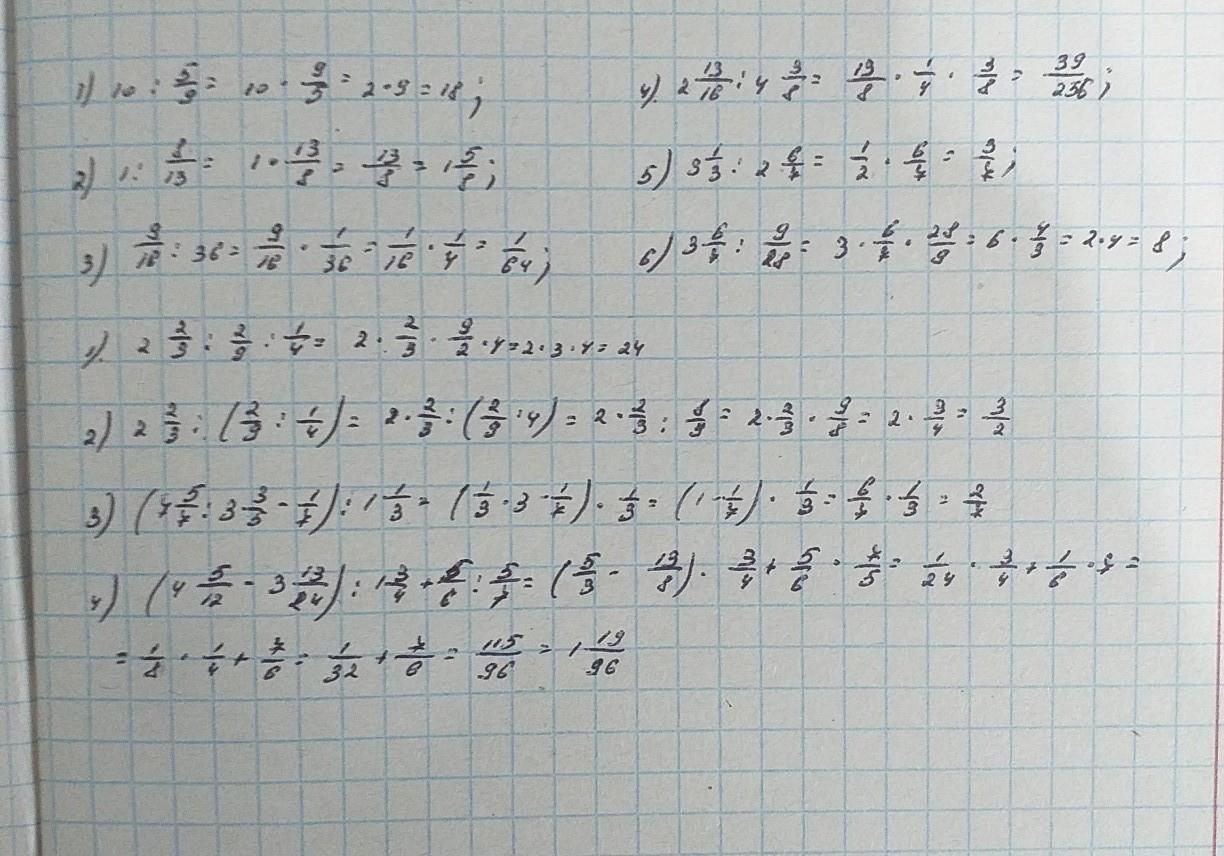 1) 10 : 5/9 = 10 · 9/5 = 2·9 = 18;
2) 1 : 8/13 = 1 · 13/8 = 13/8 = 1 5/8;
3) 9/16 : 36 = 9/16 · 1/36 = 1/16 · 1/4 = 1/64;
4). 2 13/16 : 4 3/8 = 13/8 · 1/4 · 3/8 = 39/256;
5) 3 1/3 : 2 6/7 = 1/2 · 6/7 = 3/7;
6) 3 6/7 : 9/28 = 3 · 6/7 · 28/9 = 6 · 4/3 = 2·4 = 8;
1). 2 2/3 : 2/9 : 1/4 = 2 · 2/3 · 9/2 · 4 = 2·3·4 = 24
2) 2 2/3 : (2/9 : 1/4) = 2 · 2/3 : (2/9 · 4) = 2 · 2/3 : 8/9 = 2 · 2/3 · 9/8 = 2 · 3/4 = 3/2
3) (4 5/7 : 3 3/5 - 1/7) : 1 1/3 = (1/3 · 3 - 1/7) · 1/3 = (1 - 1/7) · 1/3 = 6/7 · 1/3 = 2/7
4) (4 5/12 - 3 13/24) : 1 3/4 + 5/6 : 5/7 = (5/3 - 13/8) · 3/4 + 5/6 · 7/5 = 1/24 · 3/4 + 1/6 · 7 =
= 1/8 · 1/4 + 7/6 = 1/32 + 7/6 = 115/96 = 1 19/96